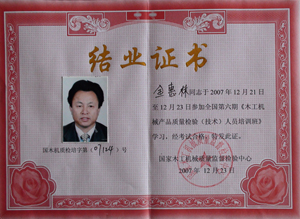 结业证书
同志于 2007 年 12 月 21 日
至 12 月 23 日参加全国第六期《木工机
械产品质量检验（技术）人员培训班》
学习，经考试合格，特发此证。
国木机质检培字第（07124）号
国家木工机械质量监督检验中心
2007 年 12 月 23 日